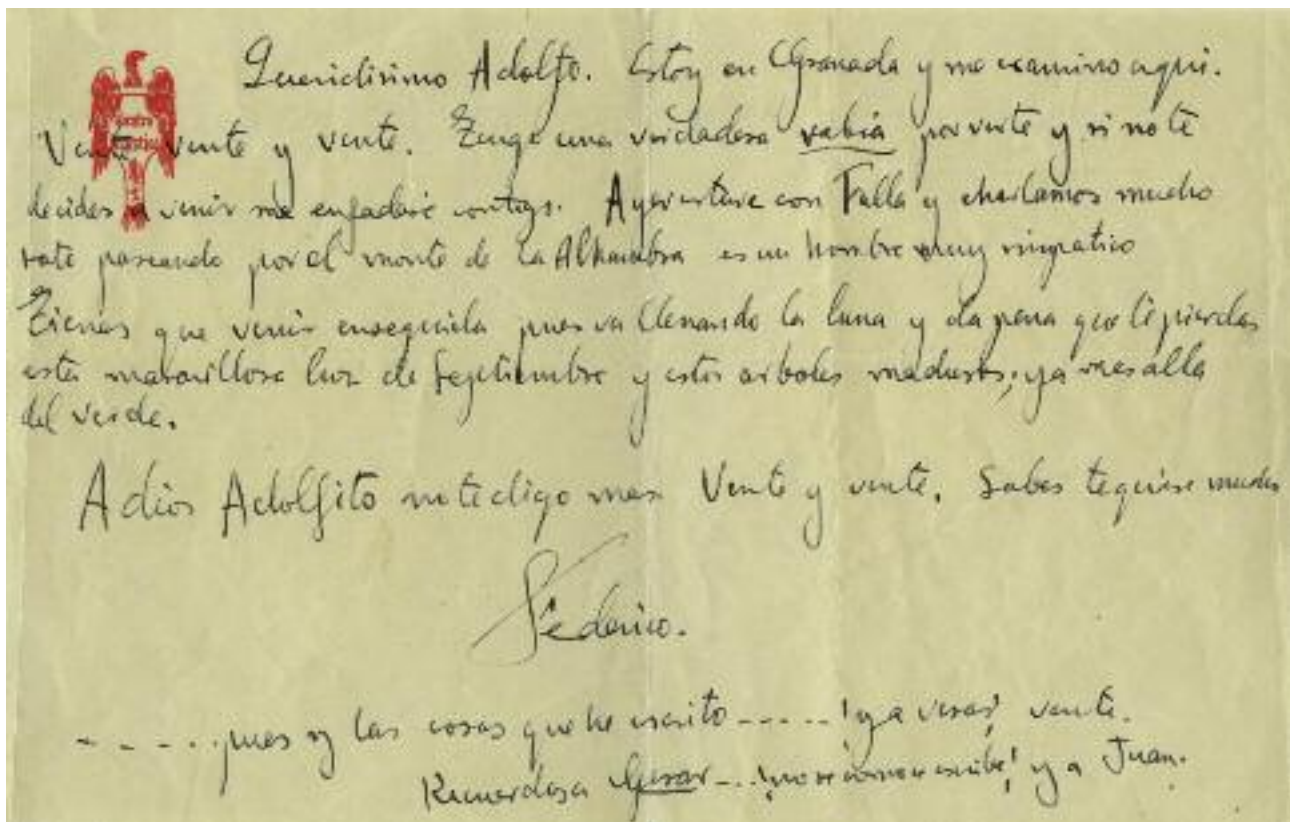 Queridisimo Adolfo. Estoy en Granada y me examino aqui.
Vente vente y vente. Tengo una verdadera rabia por verte y si no te
decides a venir me enfadaré contigo. Ayer estuve con Falla y charlamos mucho
rato paseando por el monte de la Alhambra es un hombre muy simpatico
Tienes que venir enseguida pues va llenando la luna y da pena que te pierdas
esta maravillosa luz de Septiembre y estos arboles maduros, ya mas alla
del verde.
Adios Adolfito no te digo mas Vente y vente. Sabes te quiere mucho
Federico.
- - - - . pues y las cosas que he escrito - - - . . ! ya veras! vente.
Recuerdos a - - . ! no se como se escribe! y a Juan.